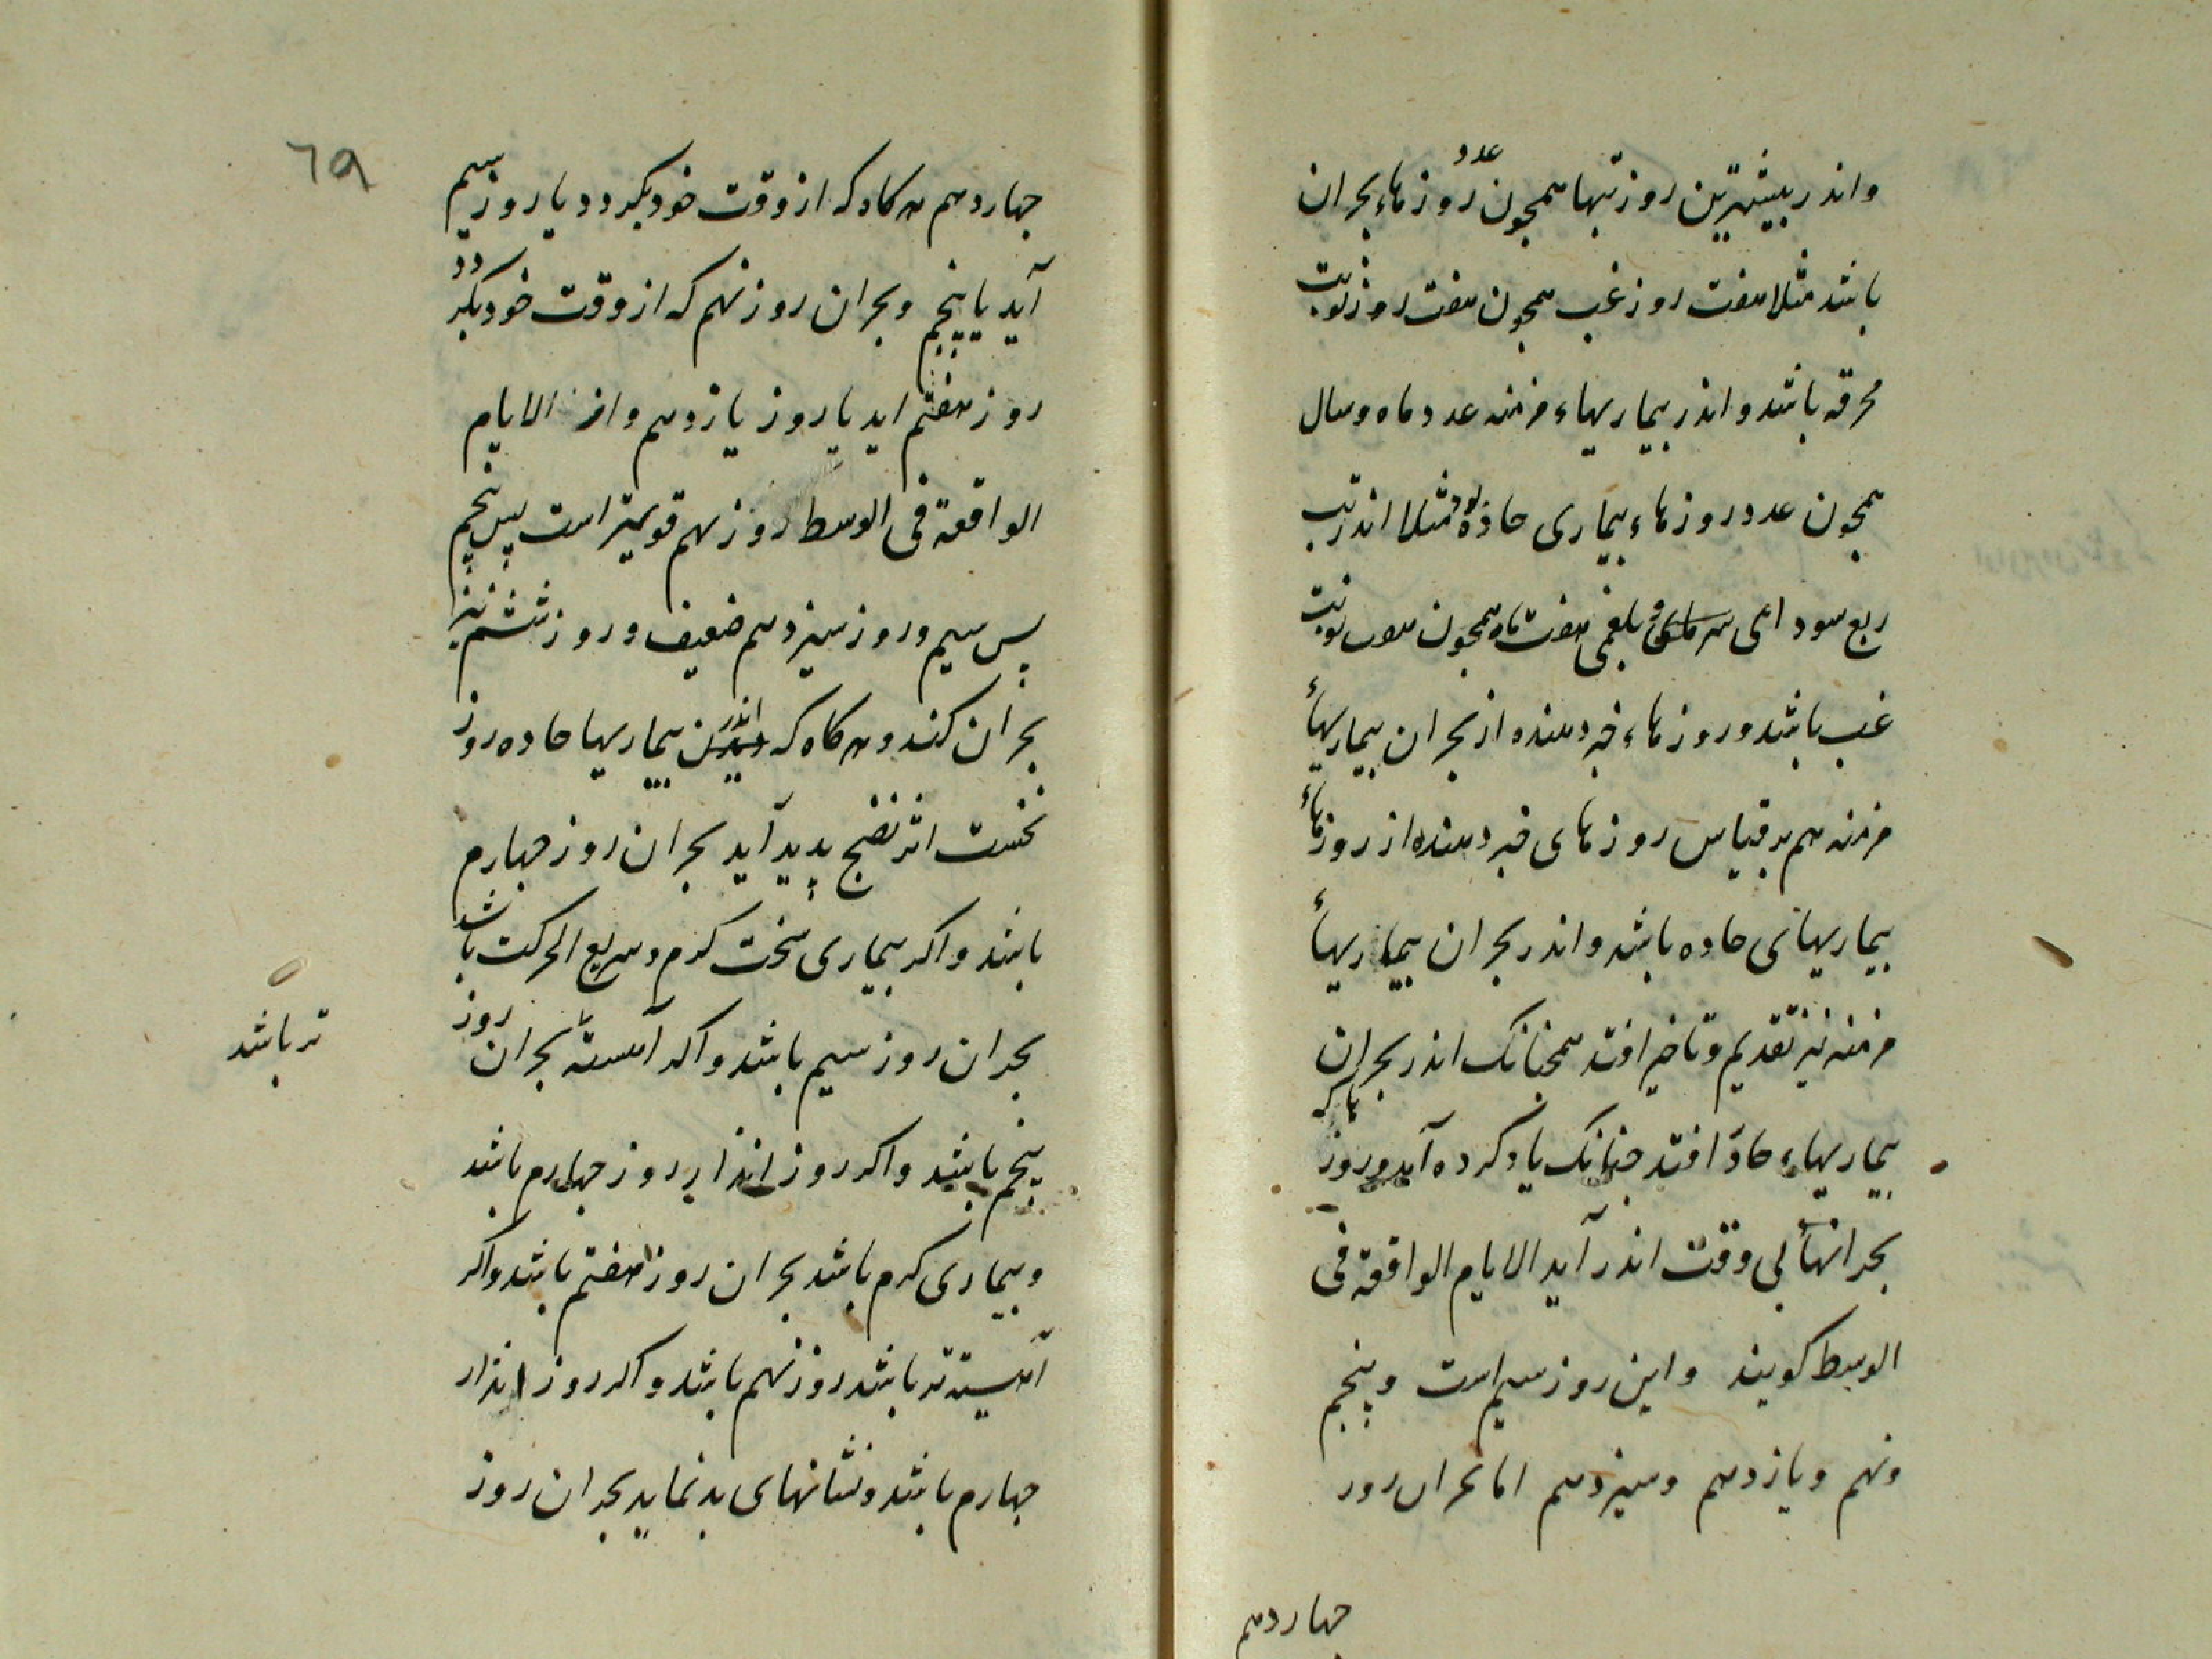 واندر بیشترین روز تبها همچون عدد روزهاء بحران
باشد مثلا هفت روز غب همچون هفت روز نوبت
محرقه باشد و اندر بیماریهاء مزمنه عدد ماه و سال
همچون عدد روزهاء بیماری حاده بود مثلا اندر تب
ربع سوداعی و بلغمی هفت ماه همچون هفت نوبت
غب باشد و روزهاء خبر دهنده از بحران بیماریهاء
مزمنه هم بر قیاس روزهای خبر دهنده از روزهاء
بیماریهای حاده باشد و اندر بحران بیماریهاء
مزمنه نیز تقدیم و تاخیر افتد همچنانک اندر بحران
بیماریهاء حاد افتد جنانک یاد کرده آید و روزها که
بحرانها بی وقت اندر آید الایام الواقعة فی
الوسط کویند و این روز سیم است و پنجم
و نهم و یازدهم و سیزدهم اما بحران روز
جهاردهم
٦٩
جهاردهم هرکاه که از وقت خود بکردد یا روز سیم
آید یا پنجم و بحران روز نهم که از وقت خود بکردد
روز هفتم اید یا روز یازدهم و از الایام
الواقعة فی الوسط روز نهم قویتر است پس پنجم
پس سیم و روز سیزدهم ضعیف و روز ششم نیز
بحران کند و هرکاه که اندر بیماریها حاده روز
نخست اثر نضج پدید آید بحران روز جهارم
باشد و اکر بیماری سخت کرم و سریع الحرکت باشد
بحران روز سیم باشد و اکر آهسته بحران روز
تر باشد
پنجم باشد و اکر روز انذار روز جهارم باشد
و بیماری کرم باشد بحران روز هفتم باشد و اکر
آهسته تر باشد روز نهم باشد و اکر روز انذار
جهارم باشد و نشانهای بد نماید بحران روز